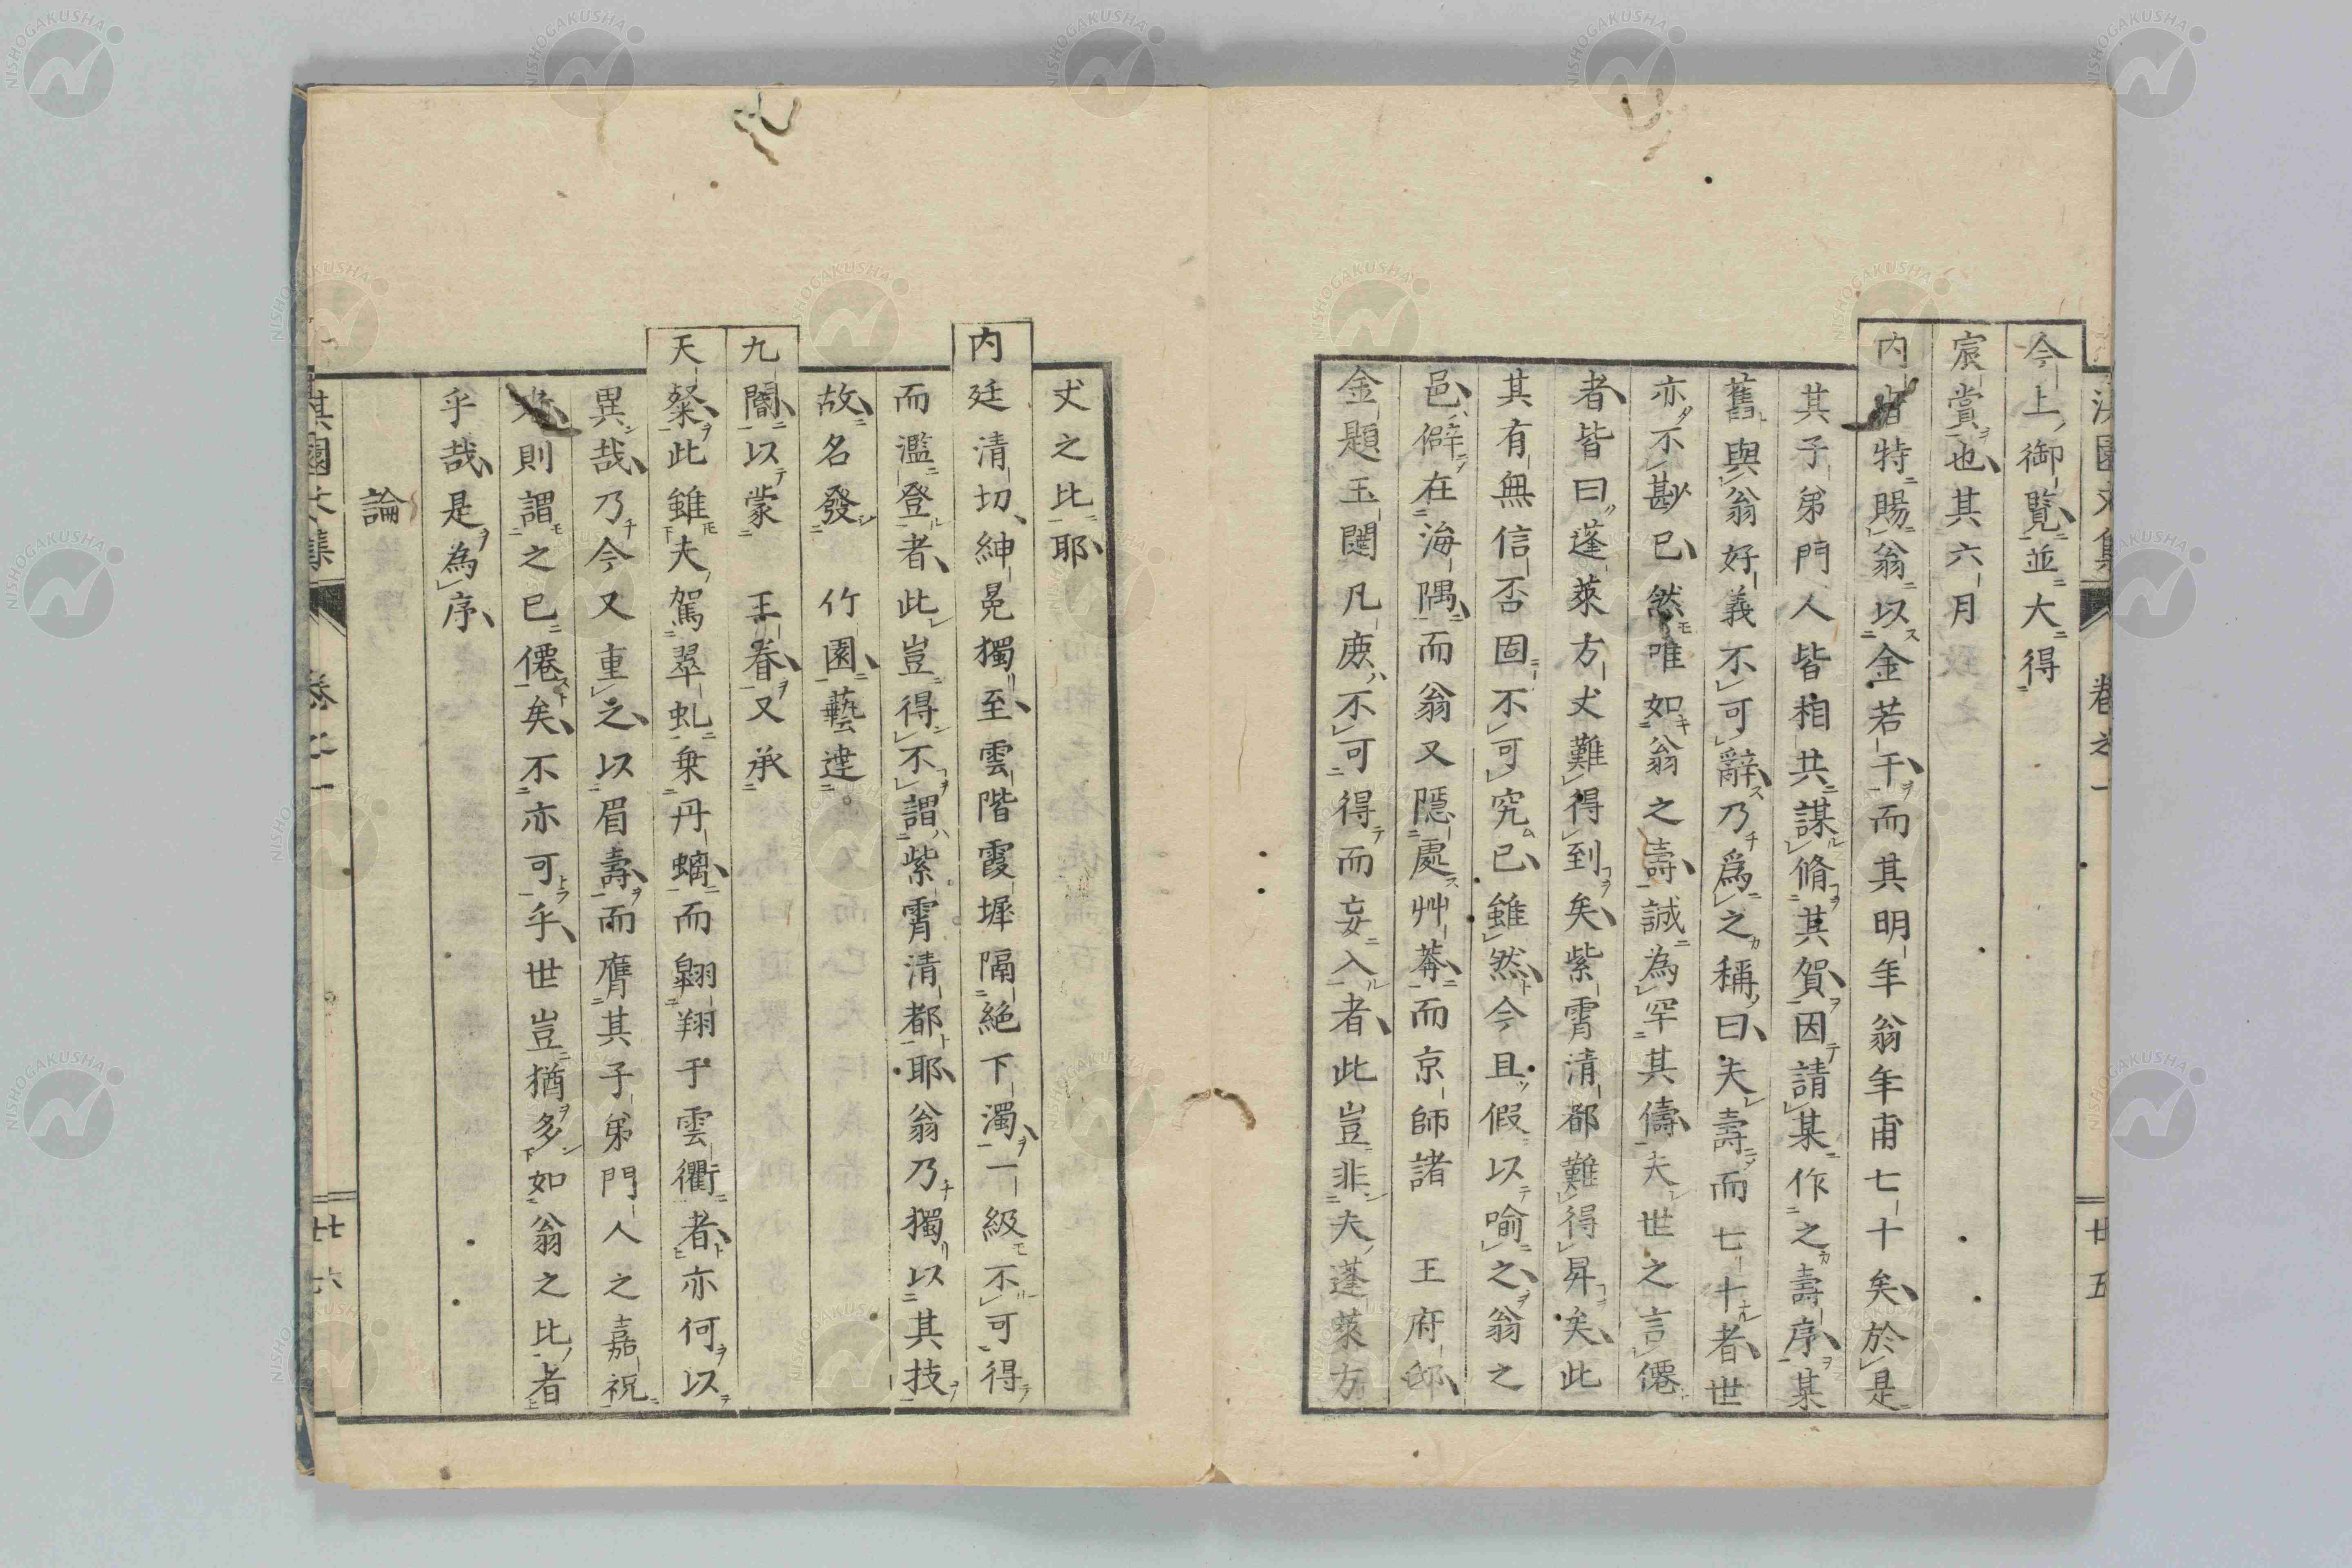 今上御覽並大得
宸賞也其六月
内旨特賜翁以金若干而其明年翁年甫七十矣於是
其子弟門人皆相共謀脩其賀因請某作之壽序某
舊與翁好義不可辭乃爲之稱曰夫壽而七十者世
亦不尠已然唯如翁之壽誠為罕其儔夫世之言僊
者皆曰蓬萊方丈難得到矣紫霄清都難得昇矣此
其有無信否固不可究已雖然今且假以喻之翁之
邑僻在海隅而翁又隱處艸莽而京師諸 王府邸
金題玉闥凡庶不可得而妄入者此豈非夫蓬萊方
卷之一
廿五
丈之比耶
内廷清切紳冕獨至雲階霞墀隔絕下濁一級不可得
而濫登者此豈得不謂紫霄清都耶翁乃獨以其技
故名發 竹園藝達
九閽以蒙 王眷又承
天粲此雖夫駕翠虬乗丹螭而翺翔于雲衢者亦何以
異哉乃今又重之以眉壽而膺其子弟門人之嘉祝
則謂之已僊矣不亦可乎世豈猶多如翁之比者
乎哉是為序
論
淇園文集
卷之一
廿六
NISHOGAKUSHA